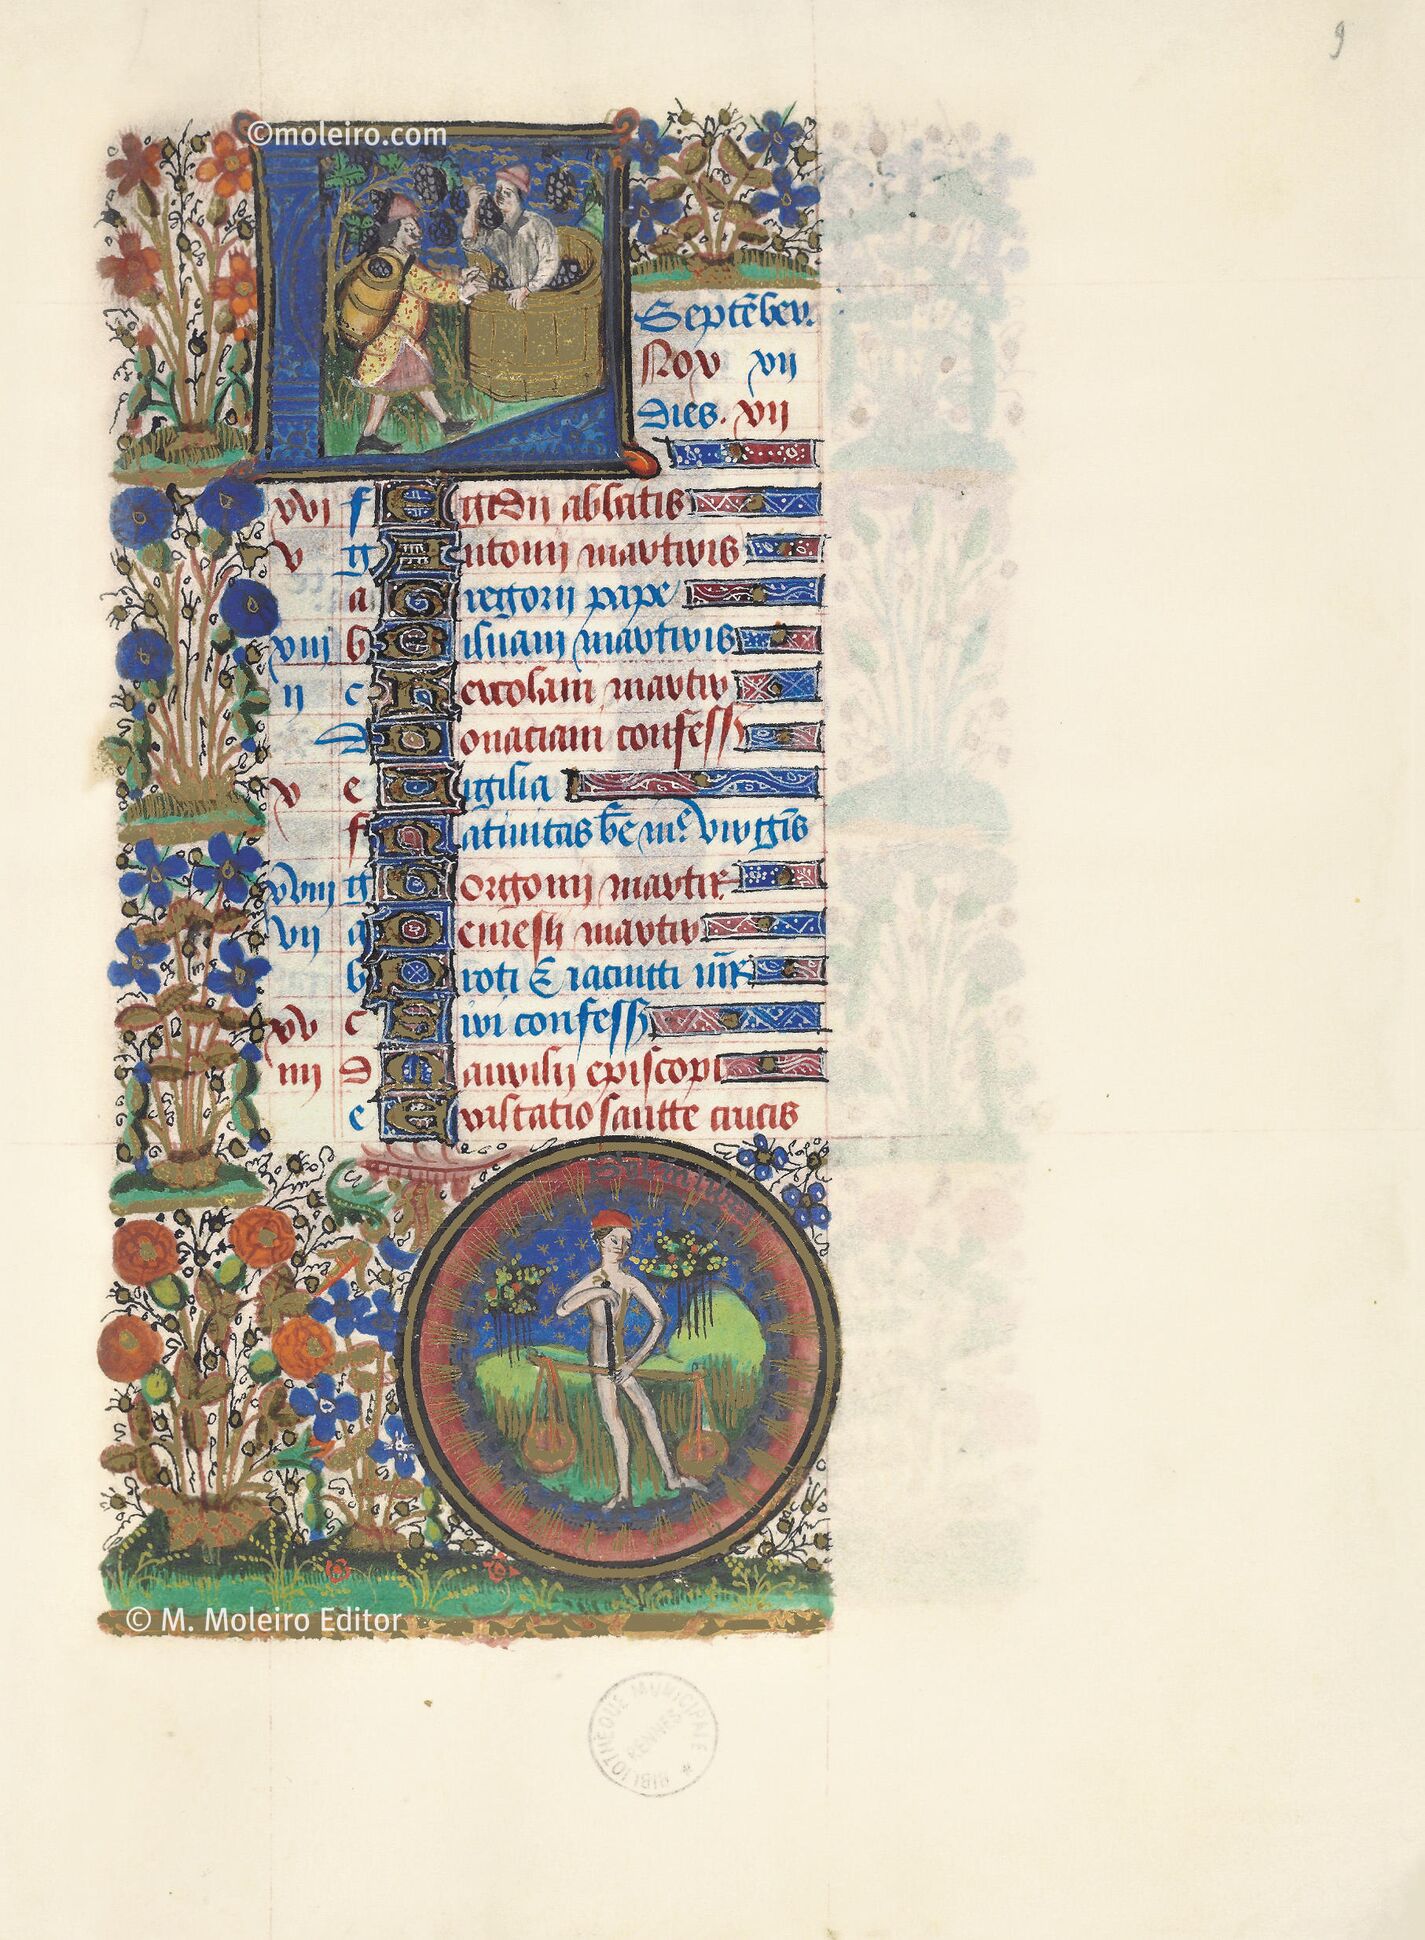 9
©moleiro.com
Septēber.
Nox vij
Dies. vij
xvi f Egidii abbatis
v g Antonij martiris
a Gregorii pape
xiii b martiris
ii c martir
d Donaciani confess
v e Vigilia
f Nativitas be m^e. Virginis
g Gorgonij martir
vij a martir
b Proti & iacincti mr
xv c Sixi confess
iiij d Maurilij episcopi
e Exaltatio sancte crucis
© M. Moleiro Editor
BIBLIOTHÈQUE MUNICIPALE
RENNES